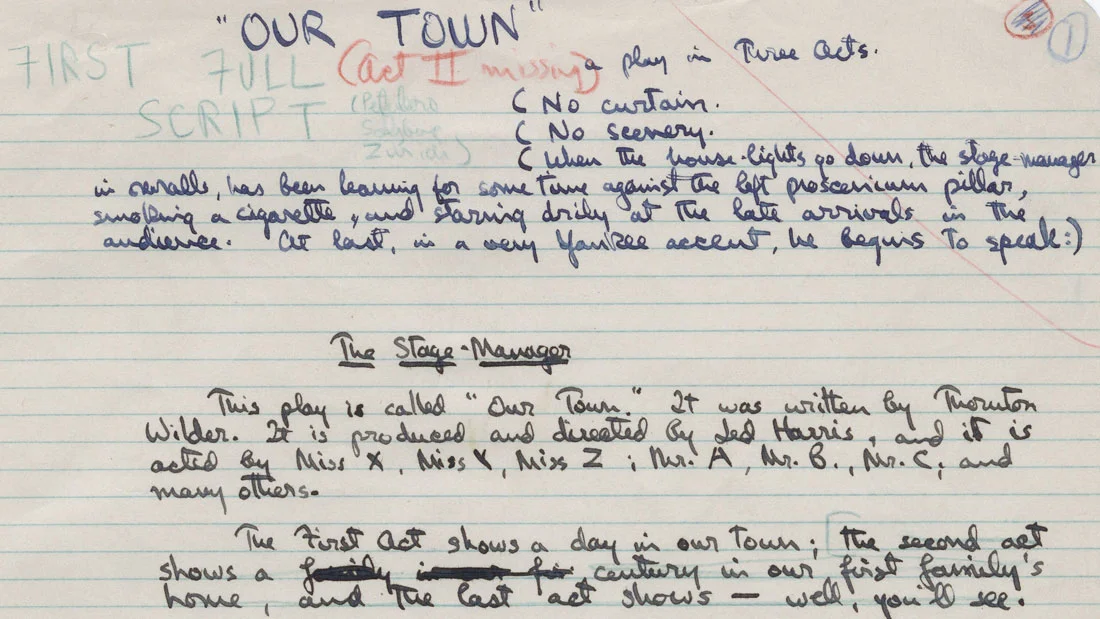 "OUR TOWN"
1
FIRST FULL (Act II missing) a play in Three Acts.
SCRIPT
(Peterboro
Salzburg
Zurich)
( No curtain.
( No scenery.
( When the house-lights go down, the stage-manager
in overalls, has been leaning for some time against the left proscenium pillar,
smoking a cigarette, and staring drily at the late arrivals in the
audience. At last, in a very Yankee accent, he begins to speak:)
The Stage-Manager
This play is called "Our Town." It was written by Thornton
Wilder. It is produced and directed by Jed Harris, and it is
acted by Miss X, Miss Y, Miss Z; Mr. A, Mr. B., Mr. C; and
many others.
The First Act shows a day in our town; the second act
shows a century in our first family's
home, and the last act shows — well, you'll see.